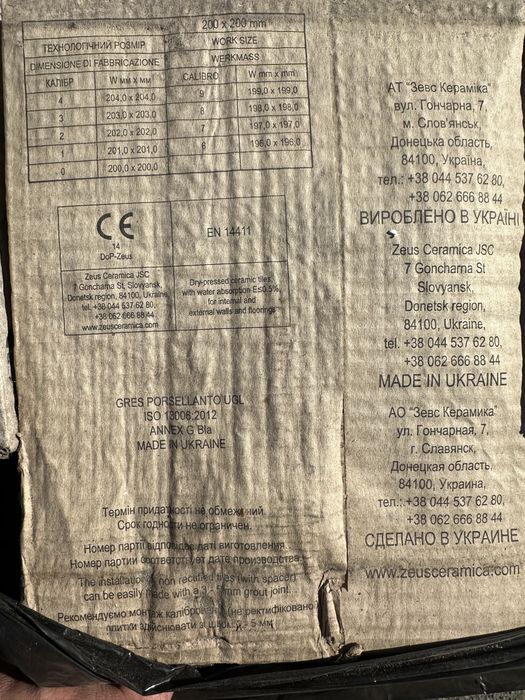 200 x 200 mm
ТЕХНОЛОГІЧНИЙ РОЗМІР
WORK SIZE
DIMENSIONE DI FABBRICAZIONE
WERKMASS
КАЛІБР
W мм х мм
CALIBRO
W mm x mm
4
204,0 x 204,0
9
199,0 x 199,0
3
203,0 x 203,0
8
198,0 x 198,0
2
202,0 x 202,0
7
197,0 x 197,0
1
201,0 x 201,0
6
196,0 x 196,0
0
200,0 x 200,0
CE
14
DoP-Zeus
EN 14411
Zeus Ceramica JSC
7 Goncharna St, Slovyansk,
Donetsk region, 84100, Ukraine,
tel. +38 044 537 62 80,
+38 062 666 88 44
www.zeusceramica.com
Dry-pressed ceramic tiles,
with water absorption E≤0.5%
for internal and
external walls and floorings
GRES PORSELLANTO UGL
ISO 13006:2012
ANNEX G BIa
MADE IN UKRAINE
Термін придатності не обмежений.
Срок годности не ограничен.
Номер партії відповідає даті виготовлення.
Номер партии соответствует дате производства.
The installation non rectified tiles (with spacer)
can be easily made with a 3 - 5 mm grout joint.
Рекомендуємо монтаж каліброваної (не ректифіковано
плитки здійснювати зі швом: - 5 мм
АТ "Зевс Кераміка"
вул. Гончарна, 7,
м. Слов'янськ,
Донецька область,
84100, Україна,
тел.: +38 044 537 62 80,
+38 062 666 88 44
ВИРОБЛЕНО В УКРАЇНІ
Zeus Ceramica JSC
7 Goncharna St
Slovyansk,
Donetsk region,
84100, Ukraine,
tel. +38 044 537 62 80,
+38 062 666 88 44
MADE IN UKRAINE
АО "Зевс Керамика"
ул. Гончарная, 7,
г. Славянск,
Донецкая область,
84100, Украина,
тел.:.+38 044 537 62 80,
+38 062 666 88 44
СДЕЛАНО В УКРАИНЕ
www.zeusceramica.com